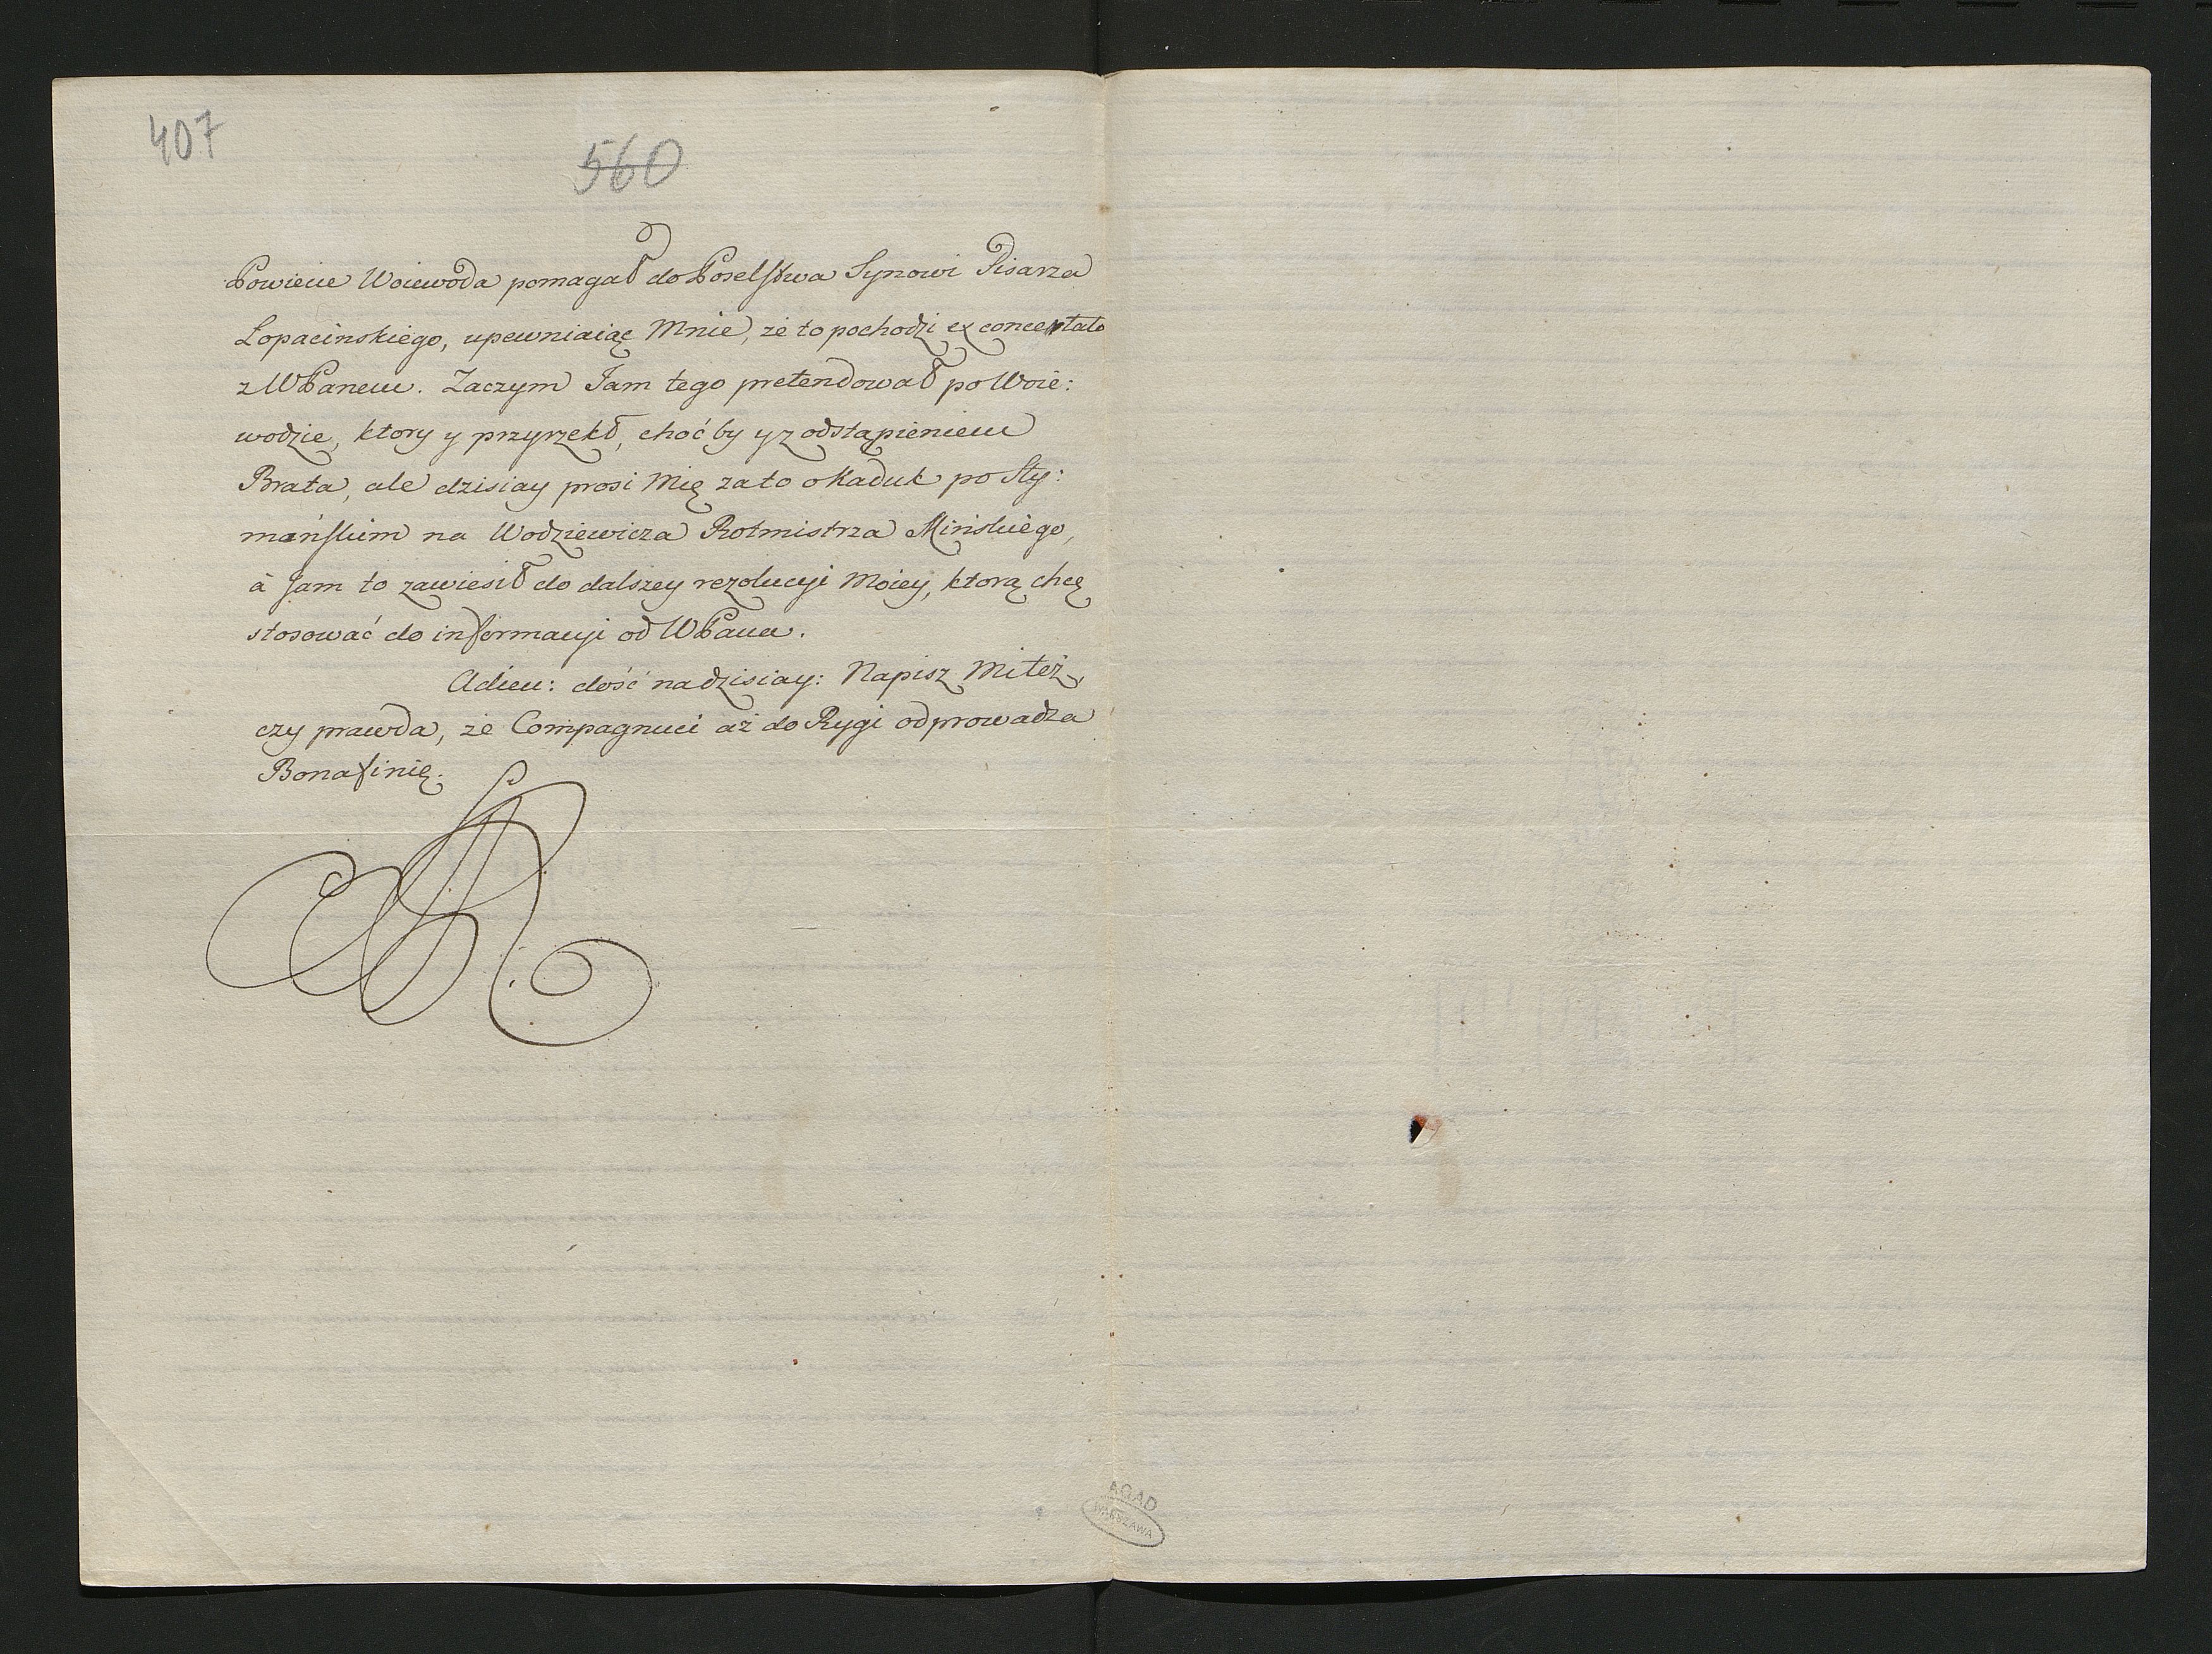 407
560
Powiecie Woiewoda pomagał do Poselstwa Synowi Pisarza
Lopacinskiego, upewniaiąc Mnie, że to pochodzi ex concertato
z WPanem. Zaczym Jam tego pretendował po Woie:
wodzie, ktory y przyrzekł, choć by y z odstąpieniem
Brata, ale dzisiay prosi Mię za to o Kaduk po Sty:
mańskim na Wodziewicza Rotmistrza Mińskiego,
à Jam to zawiesił do dalszey rezolucyi Moiey, ktorą chcę
stosować do informacyi od WPana.
Adieu: dość na dzisiay: Napisz Mi też,
czy prawda, że Compagnuci aż do Rygi odprowadza
Bonafinię.
SAR
AGAD
WARSZAWA